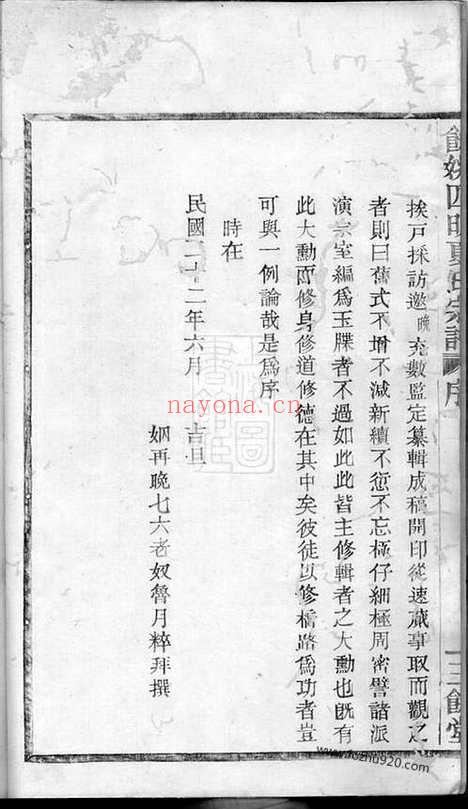 餘姚四明夏氏宗譜 序
三餘堂
挨戶採訪邀晚充數監定纂輯成稿開印從速蕆事取而觀之
者則曰舊式不增不減新續不愆不忘極仔細極周密譬諸派
演宗室編為玉牒者不過如此此皆主修輯者之大勳也既有
此大勳而修身修道修德在其中矣彼徒以修橋路為功者豈
可與一例論哉是為序
時在
民國二十二年六月 吉旦
姻再晚七六老奴魯月粹拜撰
nayona.cn
www.fozhu920.com